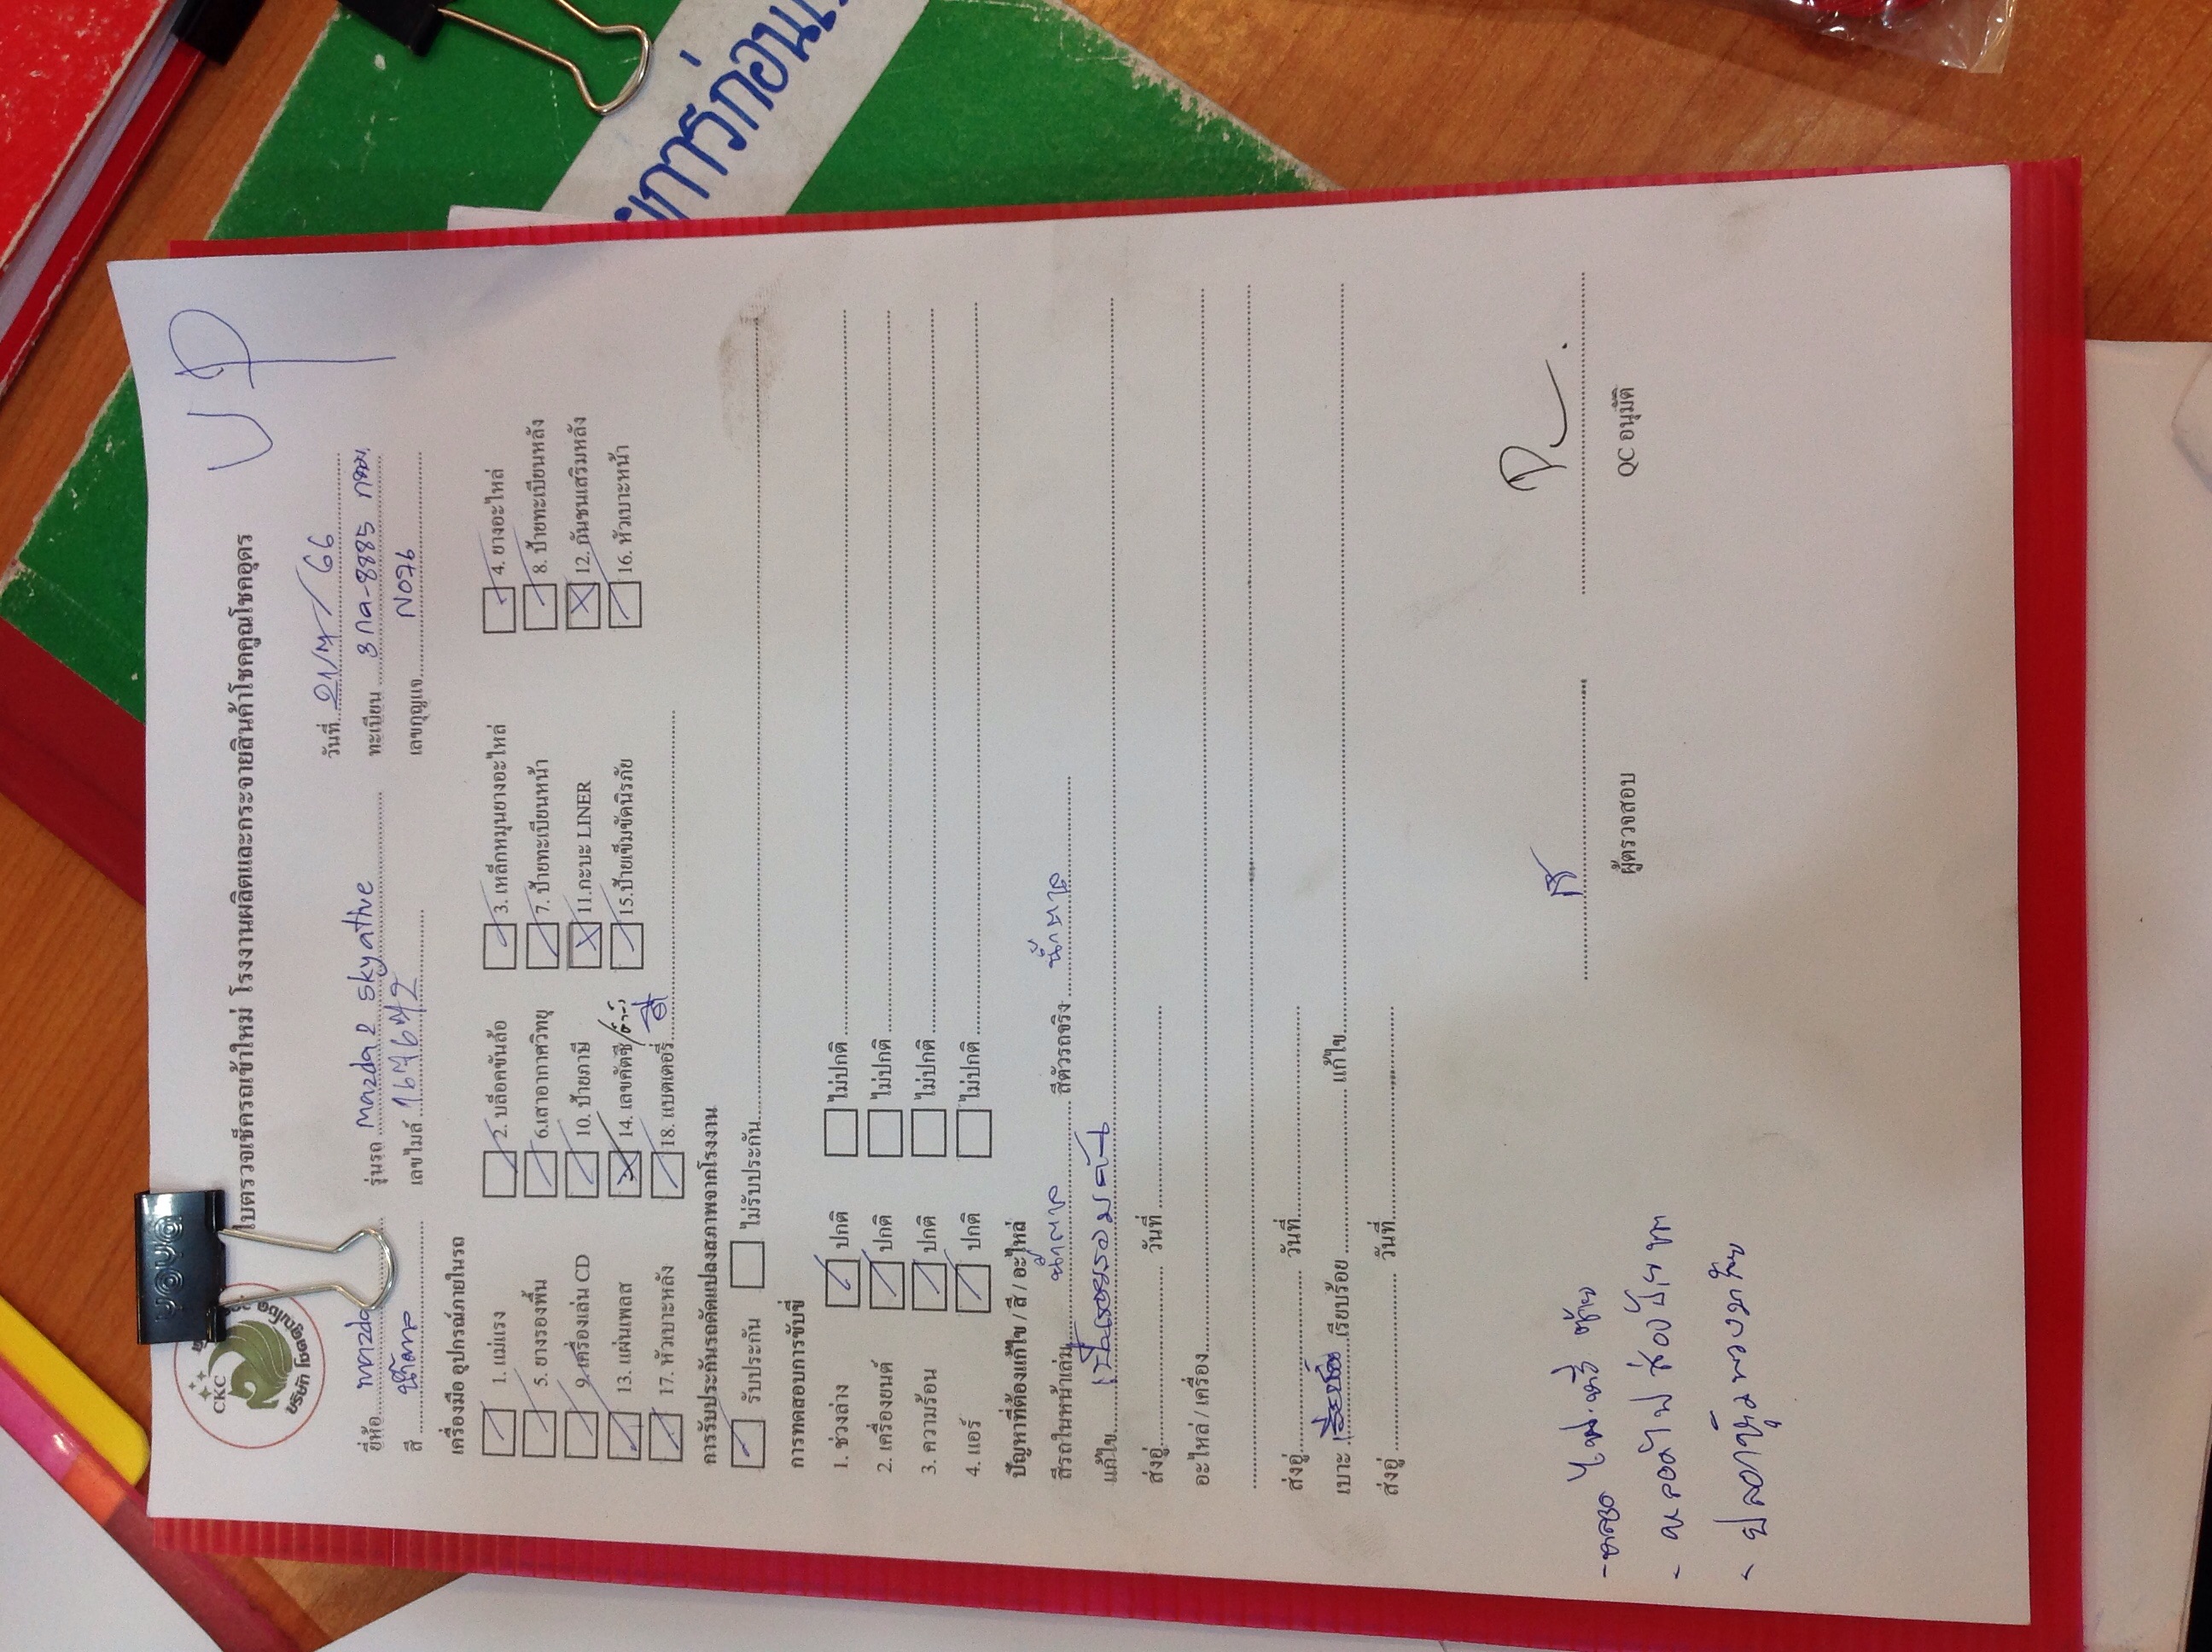 ยการก่อนเ
YOYA
CKC
บริษัท โชคคูณโชค
UP
ใบตรวจเช็ครถเข้าใหม่ โรงงานผลิตและกระจายสินค้าโชคคูณโชคอุดร
วันที่ 21/ /66
ยี่ห้อ mazda รุ่นรถ mazda 2 skyative ทะเบียน 3กด-8885 กทม.
สี น้ำตาล เลขไมล์ เลขกุญแจ N076
เครื่องมือ อุปกรณ์ภายในรถ
1. แม่แรง 2. บล็อคขันล้อ 3. เหล็กหมุนยางอะไหล่ 4. ยางอะไหล่
5. ยางรองพื้น 6.เสาอากาศวิทยุ 7. ป้ายทะเบียนหน้า 8. ป้ายทะเบียนหลัง
9.เครื่องเล่น CD 10. ป้ายภาษี 11.กะบะ LINER 12. กันชนเสริมหลัง
13. แผ่นเพลส 14. เลขคัตซี 15.ป้ายเข็มขัดนิรภัย 16. หัวเบาะหน้า
17. หัวเบาะหลัง 18. แบตเตอรี่
การรับประกันรถดัดแปลงสภาพจากโรงงาน
รับประกัน ไม่รับประกัน
การทดสอบการขับขี่
1. ช่วงล่าง ปกติ ไม่ปกติ
2. เครื่องยนต์ ปกติ ไม่ปกติ
3. ความร้อน ปกติ ไม่ปกติ
4. แอร์ ปกติ ไม่ปกติ
ปัญหาที่ต้องแก้ไข / สี / อะไหล่
สีรถในหน้าเล่ม น้ำตาล สีตัวรถจริง น้ำตาล
แก้ไข
ส่งอู่ วันที่
อะไหล่ / เครื่อง
ส่งอู่ วันที่
เบาะ เรียบร้อย แก้ไข
ส่งอู่ วันที่
ผู้ตรวจสอบ QC อนุมัติ